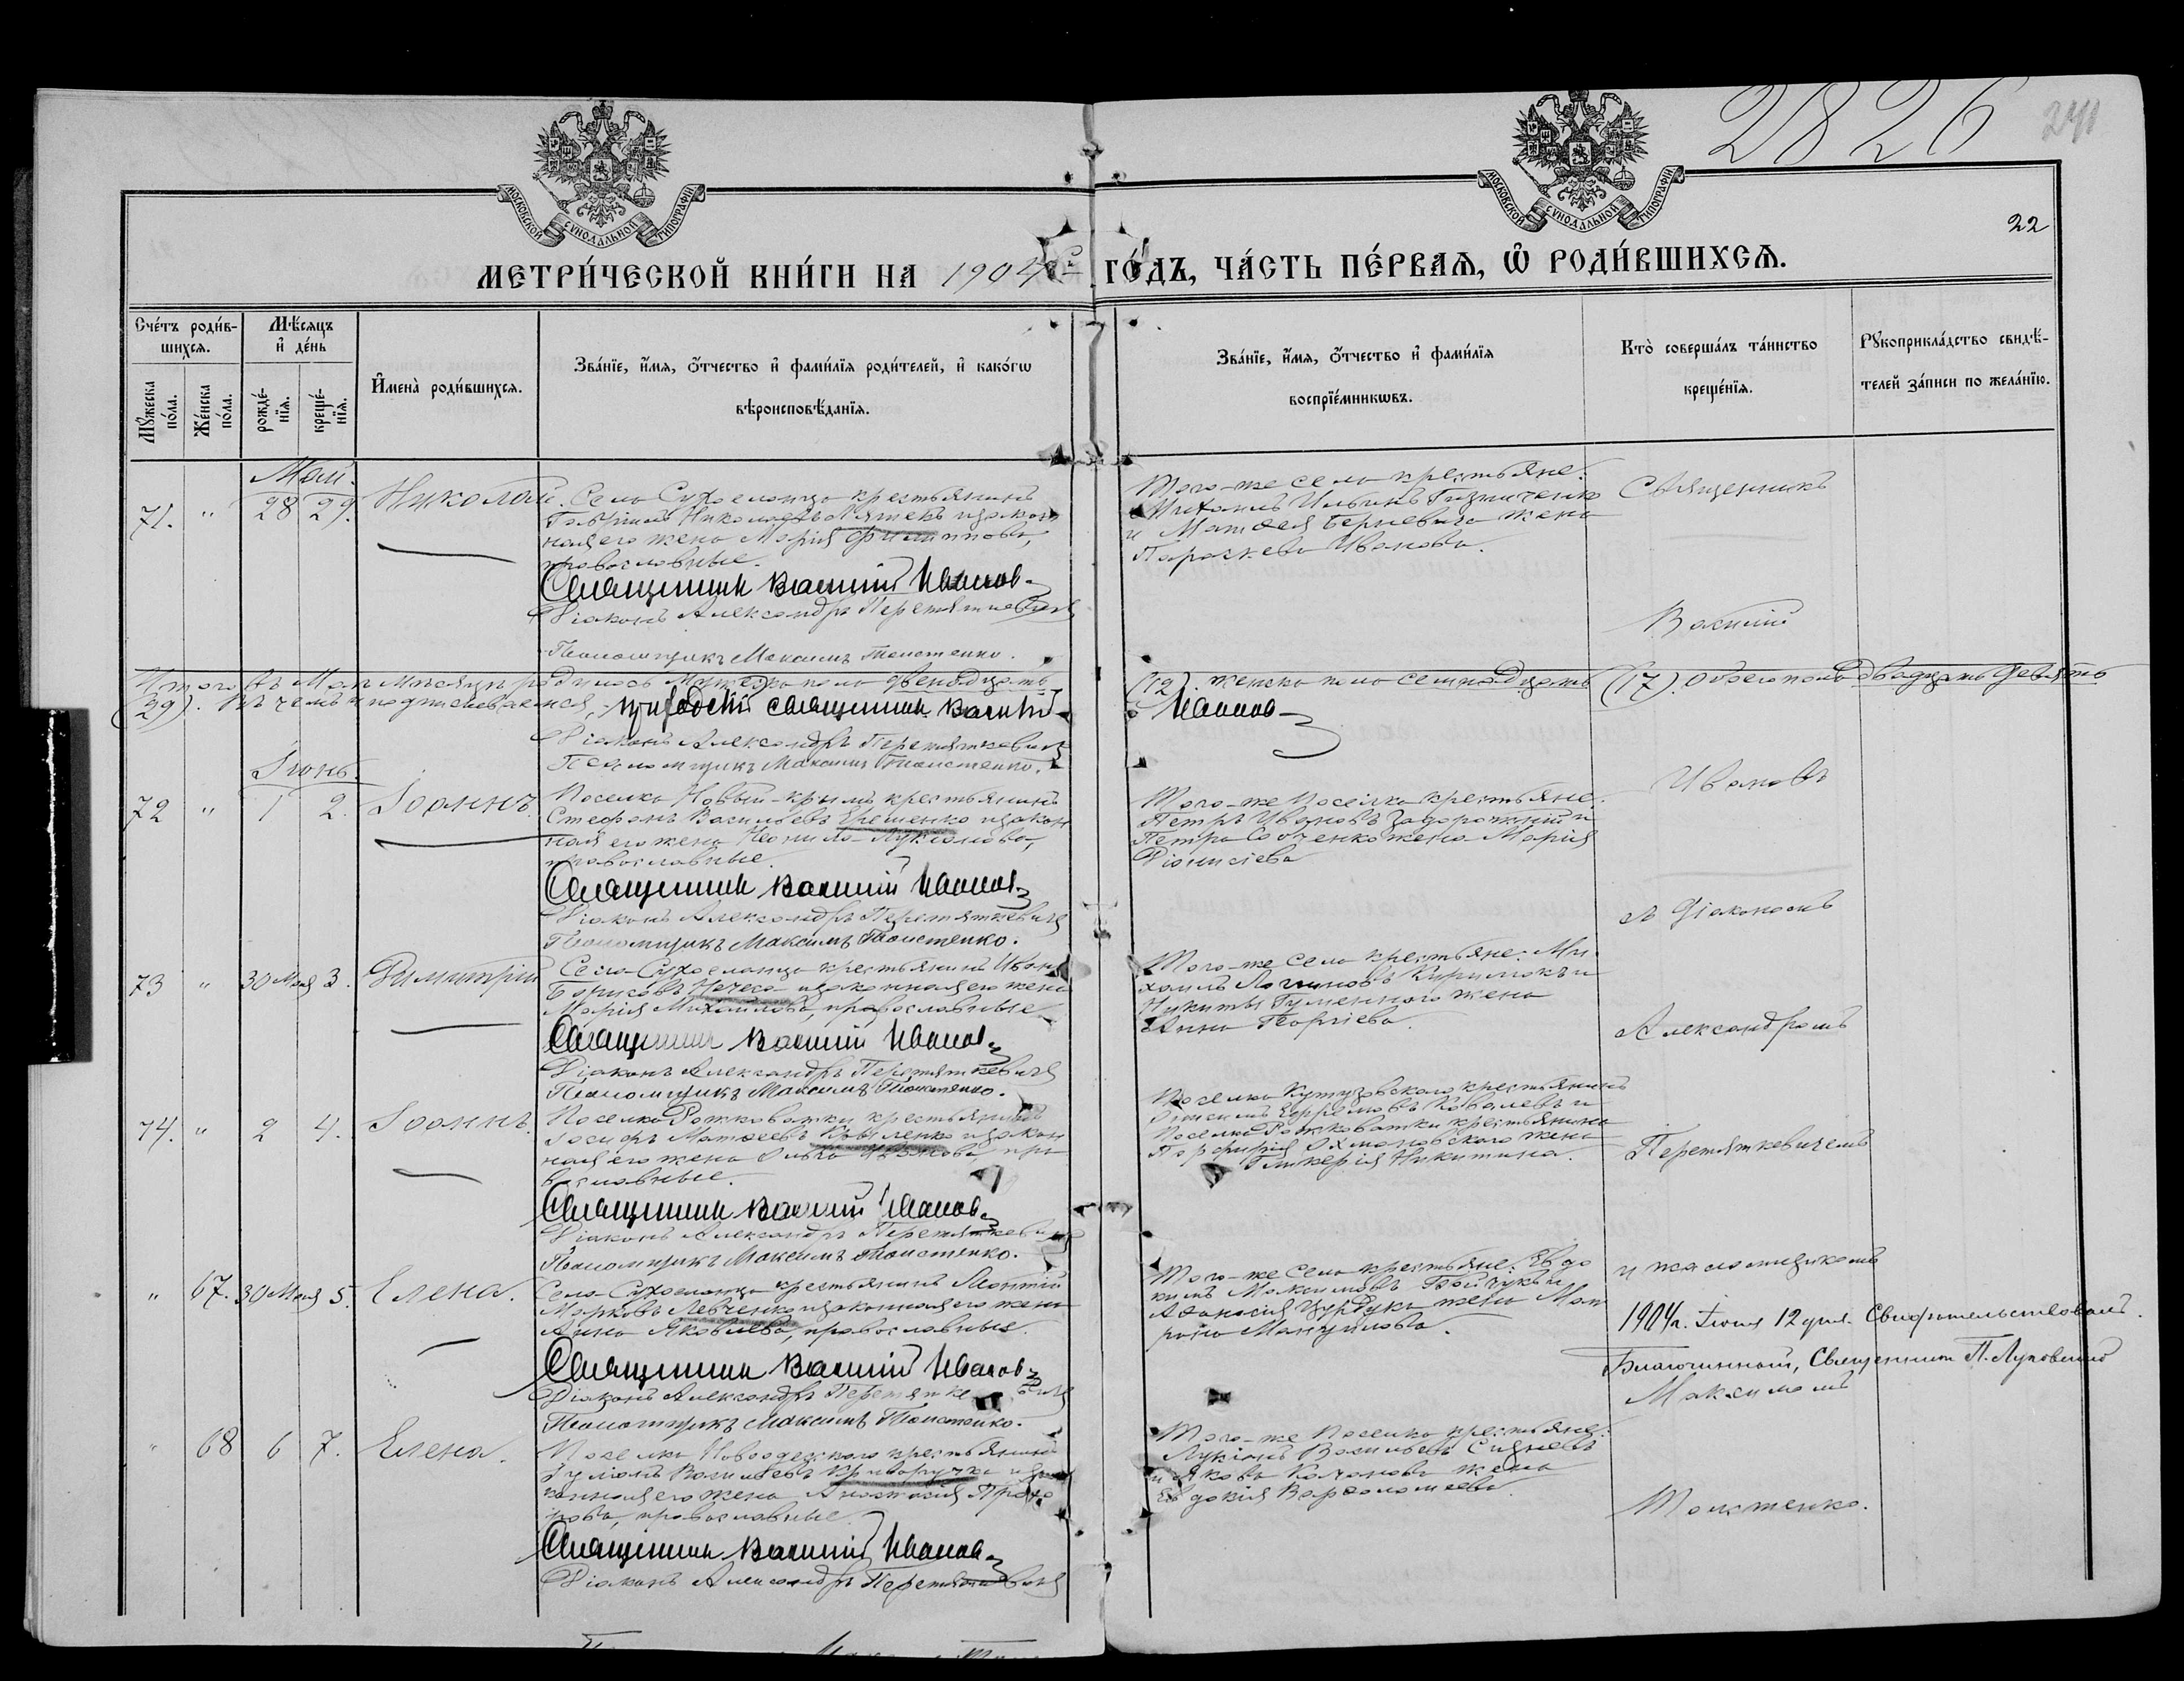 2826
241
МОСКОВСКОЙ СУНОДАЛЬНОЙ ТИПОГРАФІИ
МОСКОВСКОЙ СУНОДАЛЬНОЙ ТИПОГРАФІИ
22
МЕТРИ́ЧЕСКОЙ КНИ́ГИ НА 1904 ГО́ДЪ, ЧА́СТЬ ПЕ́РВАѦ, Ѡ҆ РОДИ́ВШИХСѦ.
Счéтъ роди́в-
шихсѧ.
Мꙋ́жеска по́ла.
Же́нска по́ла.
Мѣ́сяцъ
и҆ де́нь
рожде́-
нїѧ.
креще́-
нїѧ.
И҆менà роди́вшихсѧ.
Зва́нїе, и҆́мѧ, ѻ҆́тчество и҆ фами́лїѧ роди́телей, и҆ како́гѡ
вѣроисповѣ́данїѧ.
Зва́нїе, и҆́мѧ, ѻ҆́тчество и҆ фами́лїѧ
воспрїе́мникѡвъ.
Кто̀ соверша́лъ та́инство
креще́нїѧ.
Рꙋкоприкла́дство свидѣ́-
телей за́писи по жела́нїю.
Май.
71. " 28 29. Николай.
Села Сухоеланца крестьянинъ
Гавріилъ Николаевъ Лятекъ и закон
ная его жена Марія Филиппова,
православные.
Священникъ Василій Ивановъ
Діаконъ Александръ Перетяткевичъ
Псаломщикъ Максимъ Толстенко.
Того-же села крестьяне:
Михаилъ Ильинъ
и Матѳея жена
Параскева Иванова.
Священникъ
Василій
Итого въ Маѣ мѣсяцѣ родилось мужеска пола двенадцать
(12). женска пола семнадцать (17). обоего пола двадцать девять
(29). въ чемъ и подписываемся, приходскій священникъ Василій
Ивановъ
Діаконъ Александръ Перетяткевичъ
Псаломщикъ Максимъ Толстенко.
Іюнь.
72 " 1 2. Іоаннъ.
Поселка Новый-крымъ крестьянинъ
Стефанъ Васильевъ Ерешенко и закон
ная его жена Неонила Лукіанова,
православные.
Священникъ Василій Ивановъ
Діаконъ Александръ Перетяткевичъ
Псаломщикъ Максимъ Толстенко.
Того-же поселка крестьяне:
Петръ Ивановъ Задорожній и
Петра жена Марія
Діонисіева
Ивановъ
съ Діакономъ
73 " 30 Мая 3. Димитрій
Села Сухоеланца крестьянинъ Иванъ
Борисовъ Нечеса и законная его жена
Марія Михайлова, православные
Священникъ Василій Ивановъ
Діаконъ Александръ Перетяткевичъ
Псаломщикъ Максимъ Толстенко.
Того-же села крестьяне: Ми
хаилъ Логиновъ и
Никиты Гуменного жена
Анна Георгіева.
Александромъ
74. " 2 4. Іоаннъ.
Поселка Рожковатки крестьянинъ
Іосифъ Матѳеевъ и закон
ная его жена Ольга Иванова, пра
вославные.
Священникъ Василій Ивановъ
Діаконъ Александръ Перетяткевичъ
Псаломщикъ Максимъ Толстенко.
Поселка Кутузовского крестьянинъ
Ефремовъ Ковалевъ и
поселка Рожковатки крестьянина
Порфирія жена
Гликерія Никитина.
Перетяткевичемъ
" 67. 30 Мая 5. Елена.
Села Сухоеланца крестьянинъ
Марковъ Левченко и законная его жена
Анна Яковлева, православные.
Священникъ Василій Ивановъ
Діаконъ Александръ
Псаломщикъ Максимъ Толстенко.
Того-же села крестьяне: Евдо
кимъ Максимовъ и
Аѳанасія жена Мат
рона
и псаломщикомъ
1904 г. Іюня 12 дня. Свидѣтельствовалъ.
Благочинный, Священникъ П. Луковскій
Максимомъ
" 68 6 7. Елена.
Поселка Новоодесского крестьянинъ
Васильевъ Криворучко и за
конная его жена Анастасія Прохо
рова, православные.
Священникъ Василій Ивановъ
Діаконъ Александръ Перетяткевичъ
Того-же поселка крестьяне:
Лукіанъ Васильевъ
и Якова жена
Евдокія Варѳоломеева.
Толстенко.